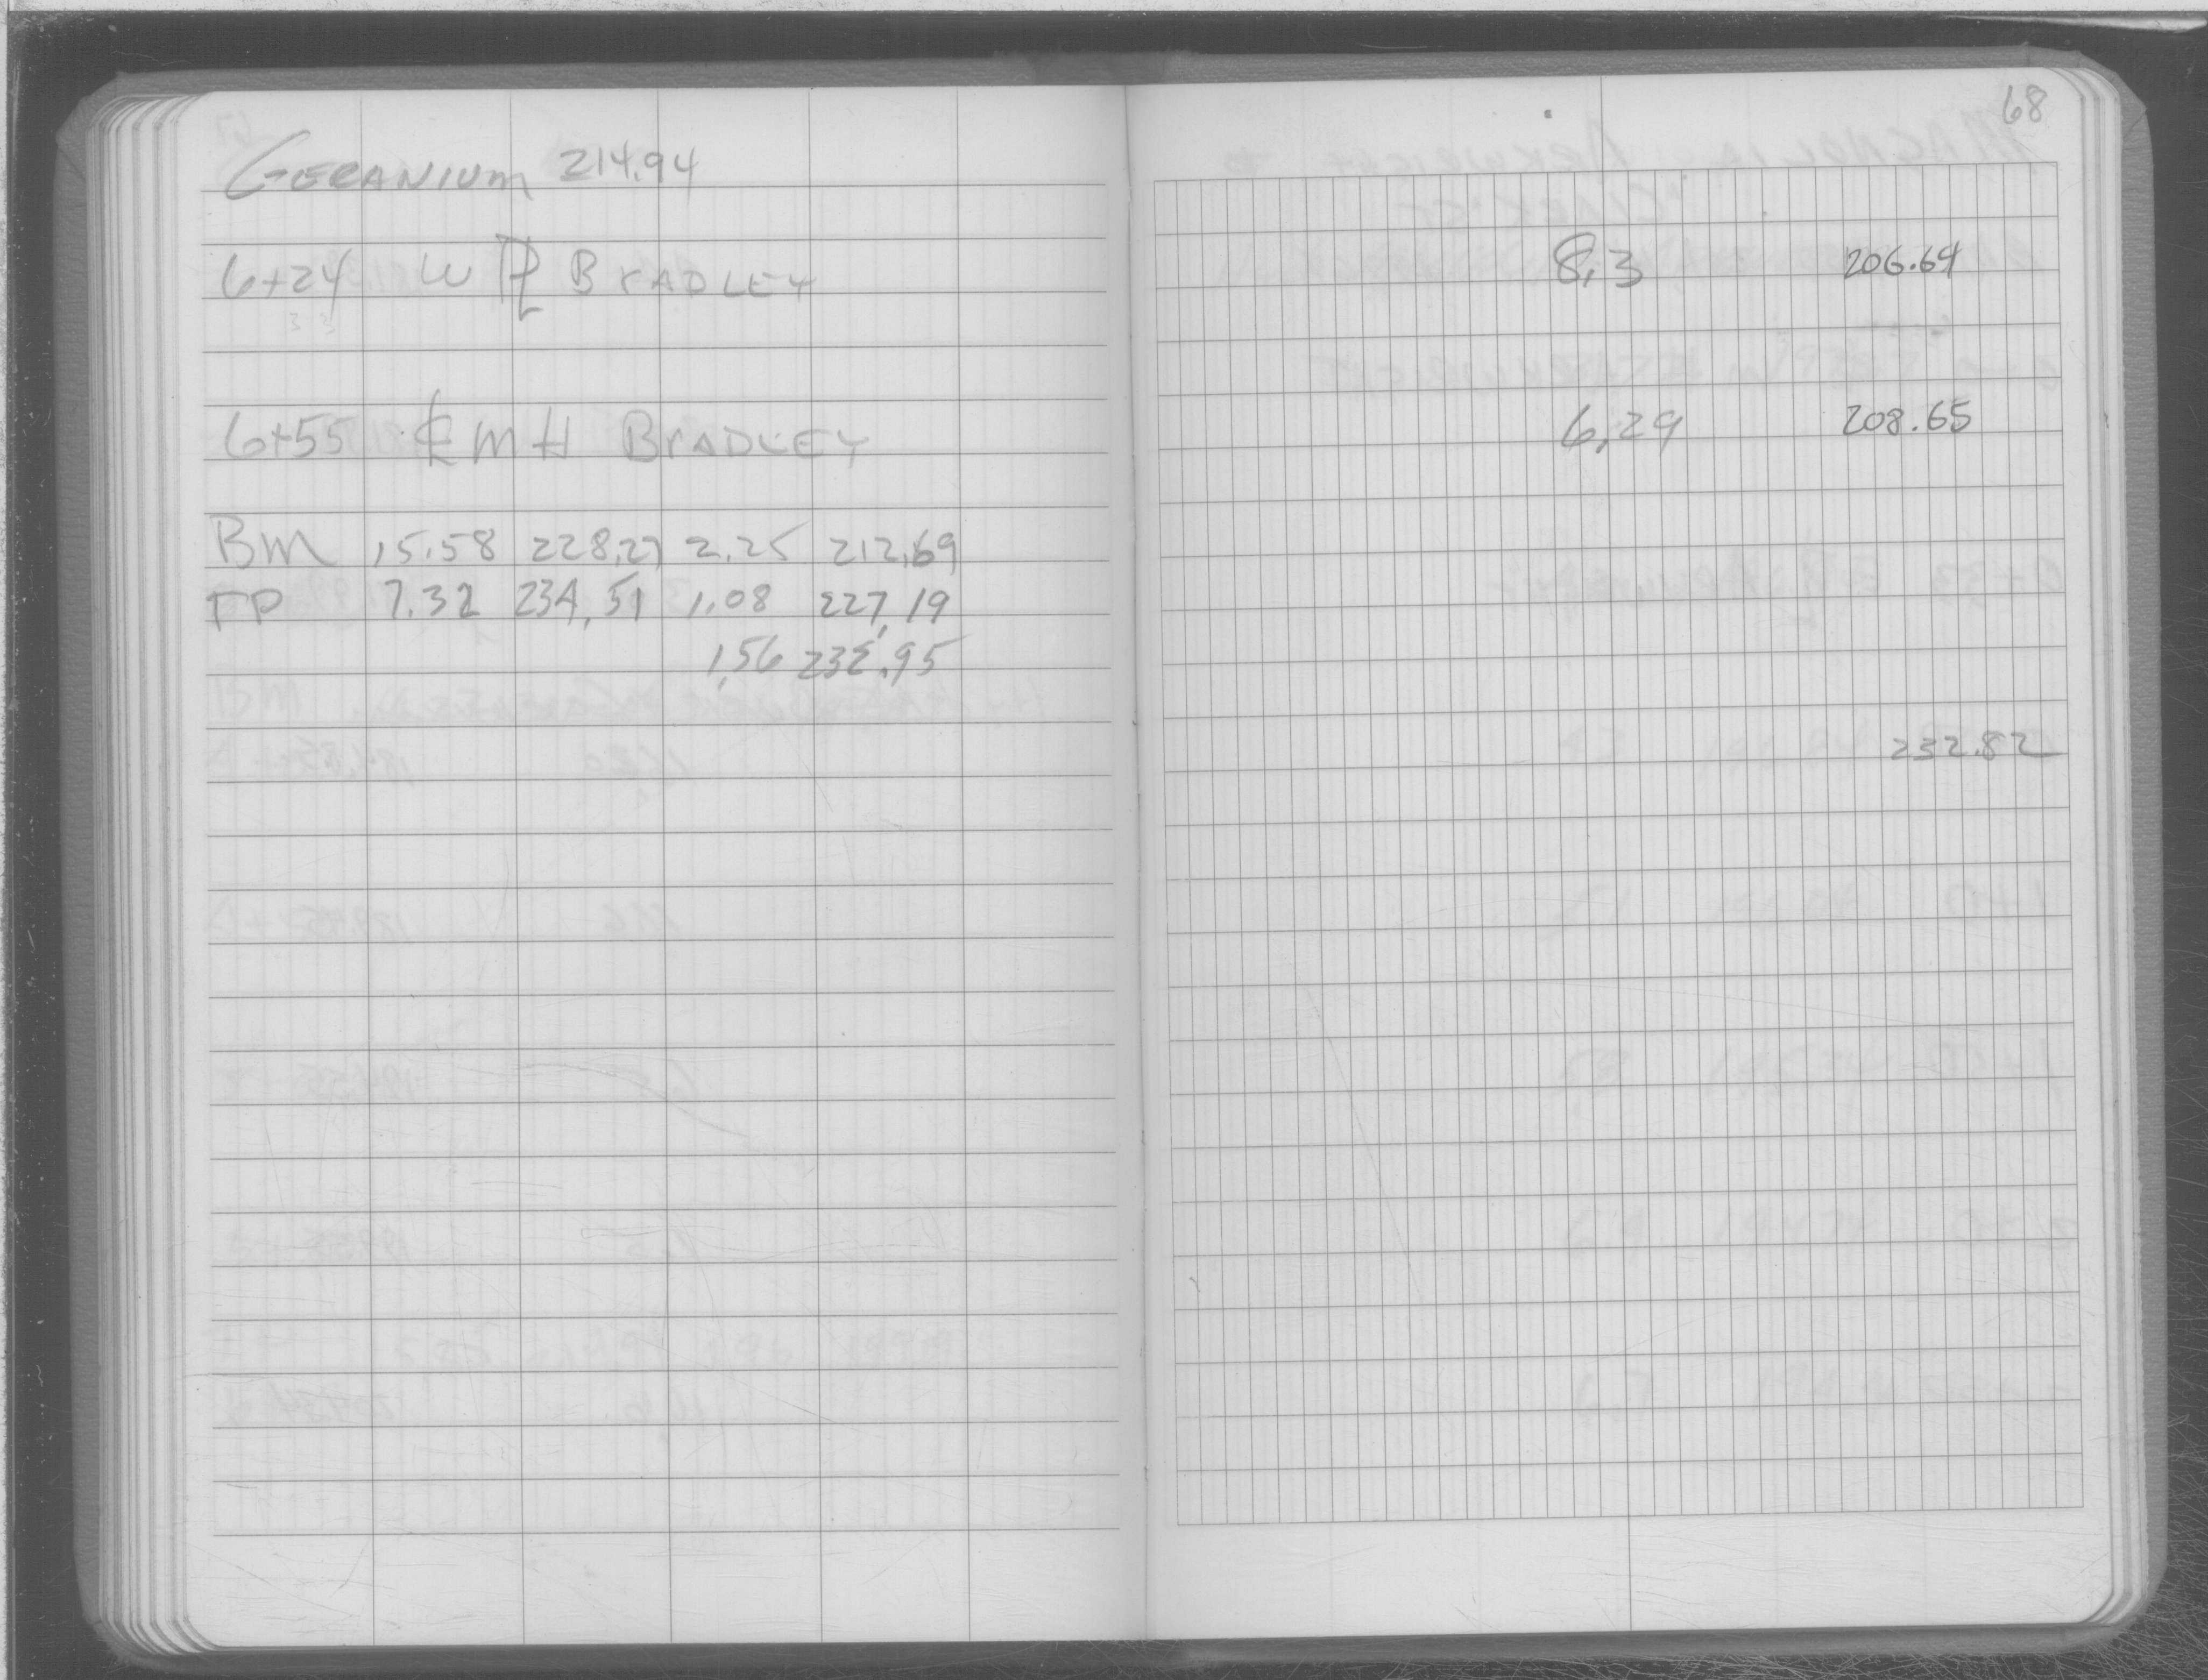 68
GERANIUM 214.94
6+24 W PL BRADLEY 8.3 206.64
33
6+55 CL MH BRADLEY 6.29 208.65
BM 15.58 228.27 2.25 212.69
TP 7.32 234.51 1.08 227.19
1.56 232.95
232.82